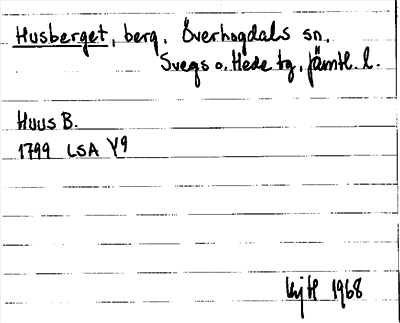 Husberget, berg. Överhogdals sn,
Svegs o. Hede tg, Jämtl. l.
Huus B.
1799 LSA Y9
1968